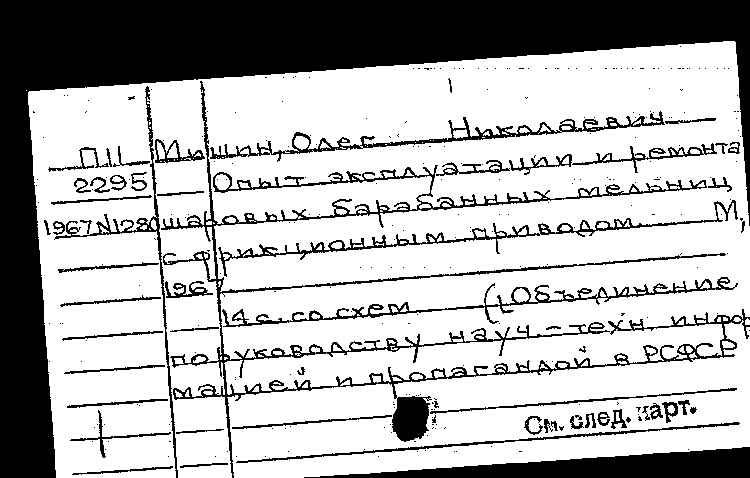 П11 Мишин, Олег Николаевич
2295 Опыт эксплуатации и ремонта
1967N1280 шаровых барабанных мельниц
с фрикционным приводом. М,
1967.
14 с. со схем (Объединение
по руководству науч.-техн. инфор
мацией и пропагандой в РСФСР
См. след. карт.